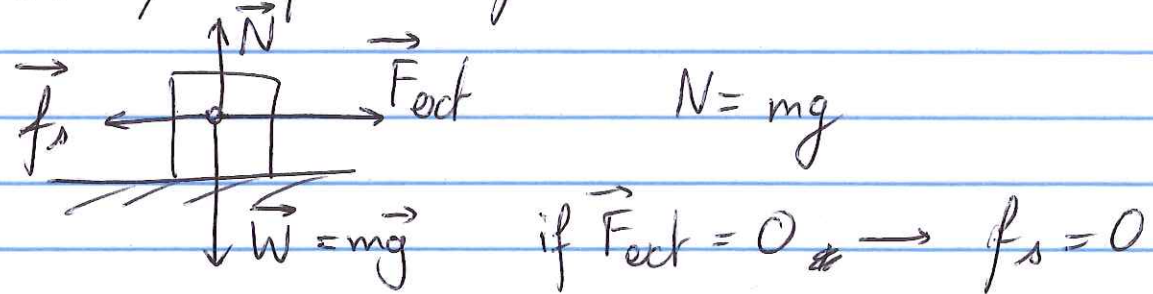 N⃗
f⃗s F⃗ext N = mg
W⃗ = mg⃗ if F⃗ext = 0 → fs = 0